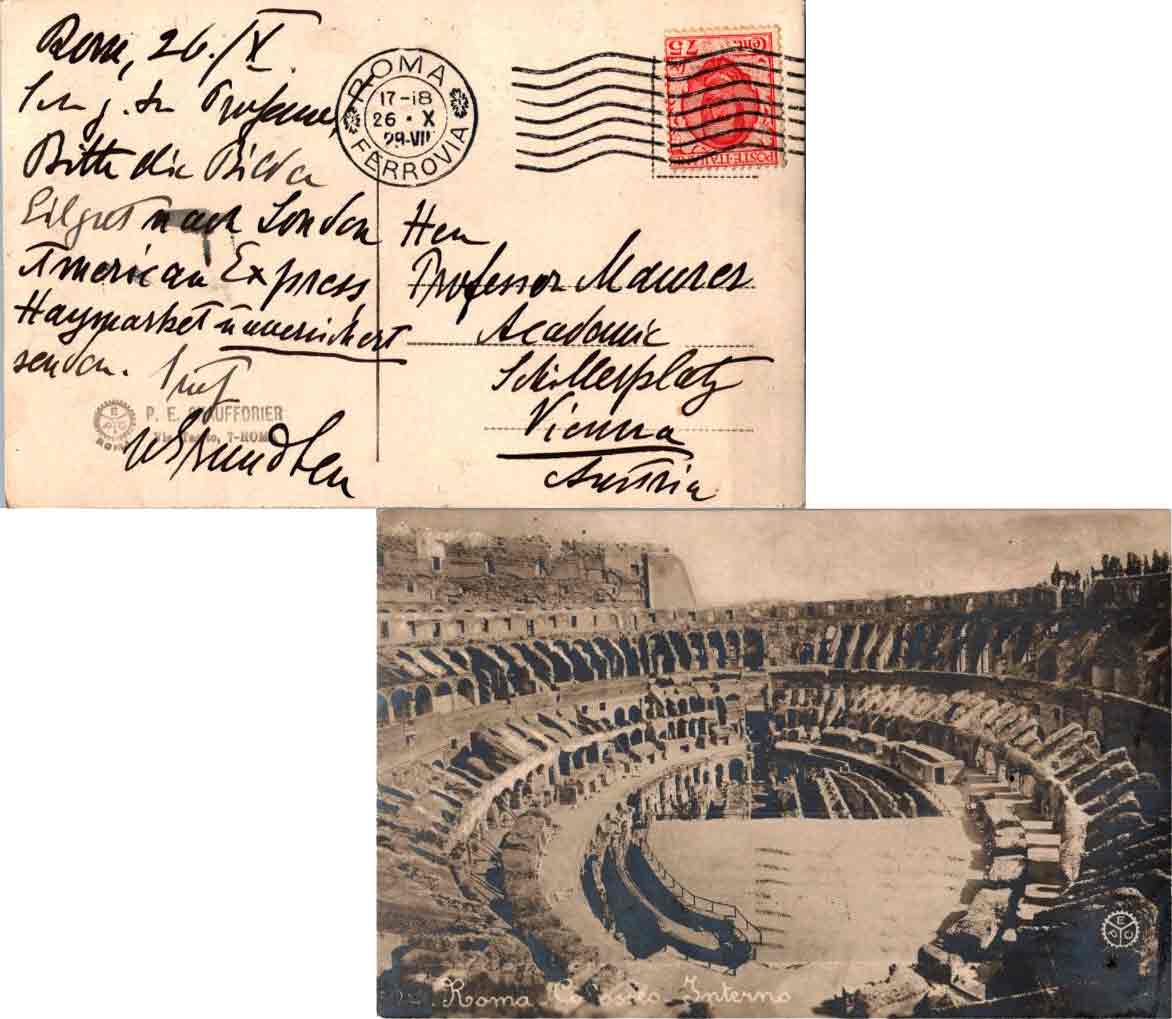 Rom, 26./X.
Sehr g. Hr Professor,
Bitte die Bilder
Eilgut nach London
American Express
Haymarket unversichert
senden.
P. E. CHAUFFOURIER
ROMA
ROMA
17-18
26 · X
29-VII
FERROVIA
75 Cent
POSTE·ITALIANE
Herrn
Professor Maurer
Academie
Schillerplatz
Vienna
Austria
Roma Colosseo Interno